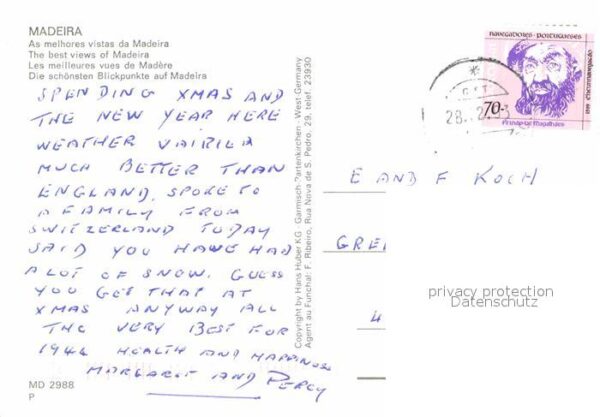 MADEIRA
As melhores vistas da Madeira
The best views of Madeira
Les meilleures vues de Madère
Die schönsten Blickpunkte auf Madeira
SPENDING XMAS AND
THE NEW YEAR HERE
WEATHER
MUCH BETTER THAN
ENGLAND. SPOKE TO
A FAMILY FROM
SWITZERLAND TODAY
SAID YOU HAWE HAD
A LOT OF SNOW. GUESS
YOU GET THAT AT
XMAS ANYWAY ALL
THE VERY BEST FOR
HEALTH AND HAPPINESS
MARGARET AND PERCY
MD 2988
P
Copyright by Hans Huber KG · Garmisch-Partenkirchen · West-Germany
Agent au Funchal: F. Ribeiro, Rua Nova de S. Pedro, 29, telef. 23930
NAVEGADORES · PORTUGUESES
70.-
Fernão de Magalhães
E AND F KOCH
GRE
4
privacy protection
Datenschutz